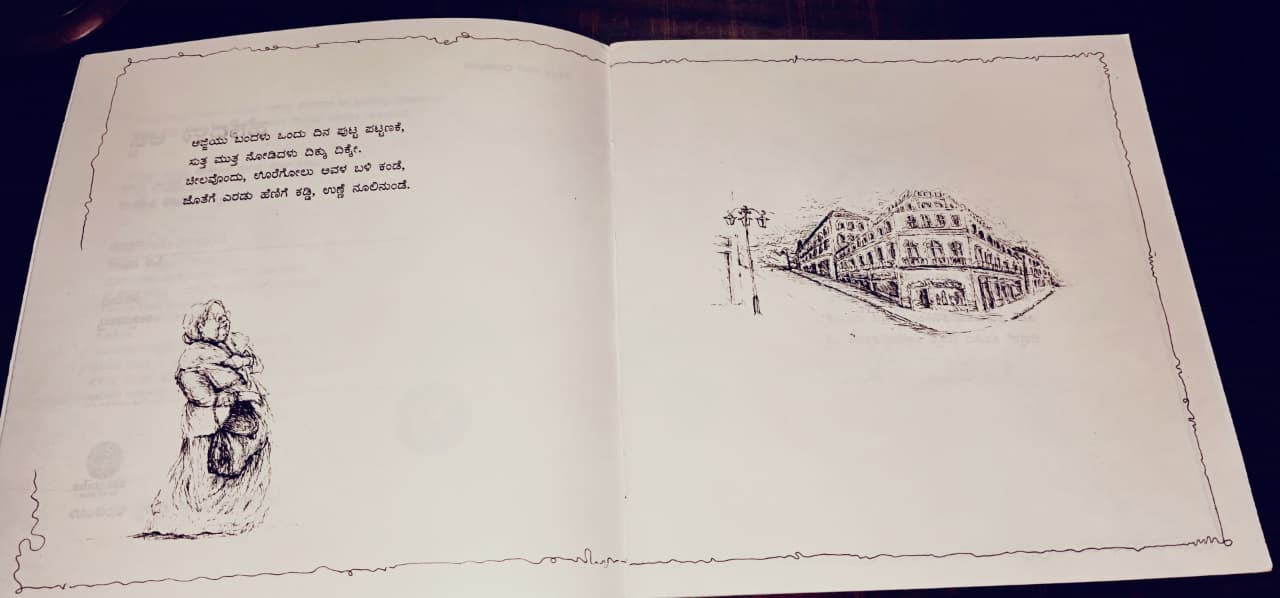 ಅಜ್ಜಿಯು ಬಂದಳು ಒಂದು ದಿನ ಪುಟ್ಟ ಪಟ್ಟಣಕೆ,
ಸುತ್ತ ಮುತ್ತ ನೋಡಿದಳು ದಿಕ್ಕು ದಿಕ್ಕೇ.
ಚೀಲವೊಂದು, ಊರೆಗೋಲು ಅವಳ ಬಳಿ ಕಂಡೆ,
ಜೊತೆಗೆ ಎರಡು ಹೆಣಿಗೆ ಕಡ್ಡಿ, ಉಣ್ಣೆ ನೂಲಿನುಂಡೆ.